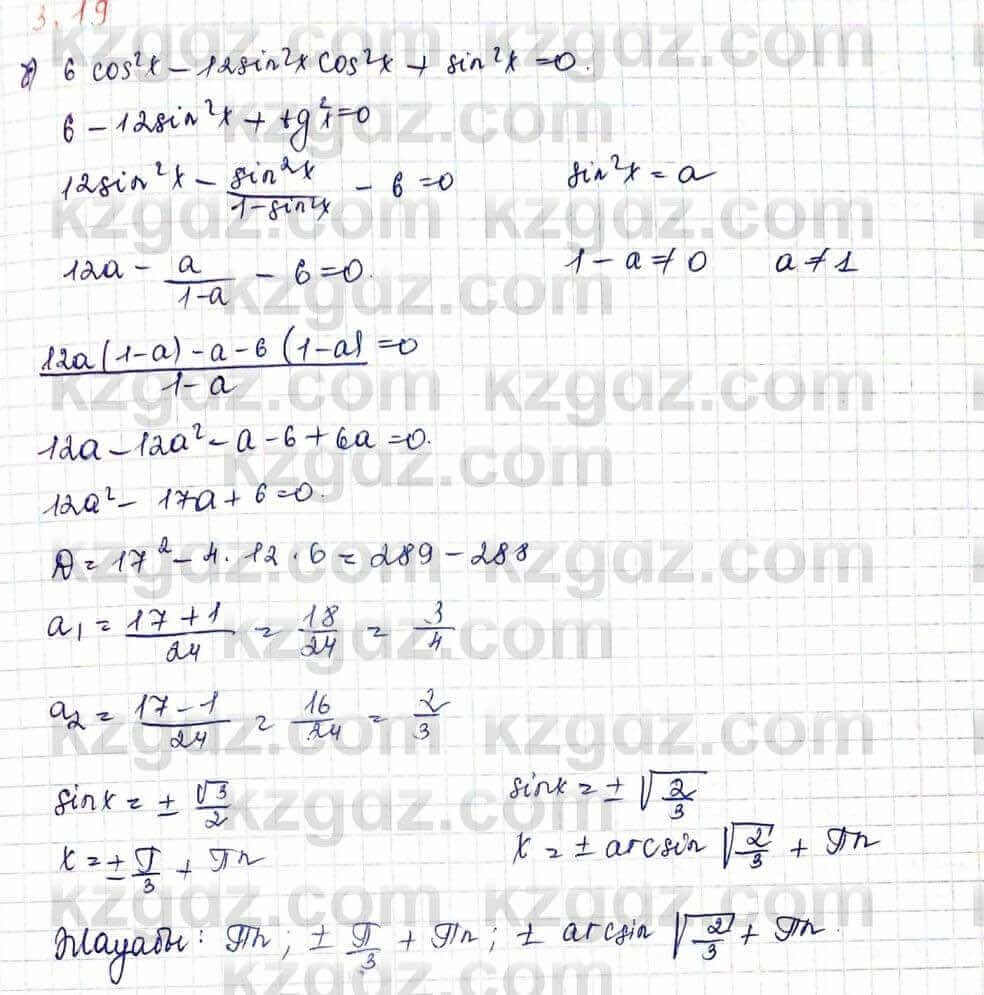 3.19
6 cos²x – 12sin²x cos²x + sin²x = 0.
6 – 12sin²x + tg²x = 0
12sin²x – sin²x/(1–sin²x) – 6 = 0 sin²x = a
12a – a/(1–a) – 6 = 0. 1 – a ≠ 0 a ≠ 1
(12a(1–a) – a – 6(1–a))/(1–a) = 0
12a – 12a² – a – 6 + 6a = 0.
12a² – 17a + 6 = 0.
D = 17² – 4 · 12 · 6 = 289 – 288
a₁ = (17+1)/24 = 18/24 = 3/4
a₂ = (17–1)/24 = 16/24 = 2/3
sinx = ± √3/2 sinx = ± √(2/3)
x = ± π/3 + πn x = ± arcsin √(2/3) + πn
Жауабы: πn; ± π/3 + πn; ± arcsin √(2/3) + πn.
kzgdz.com